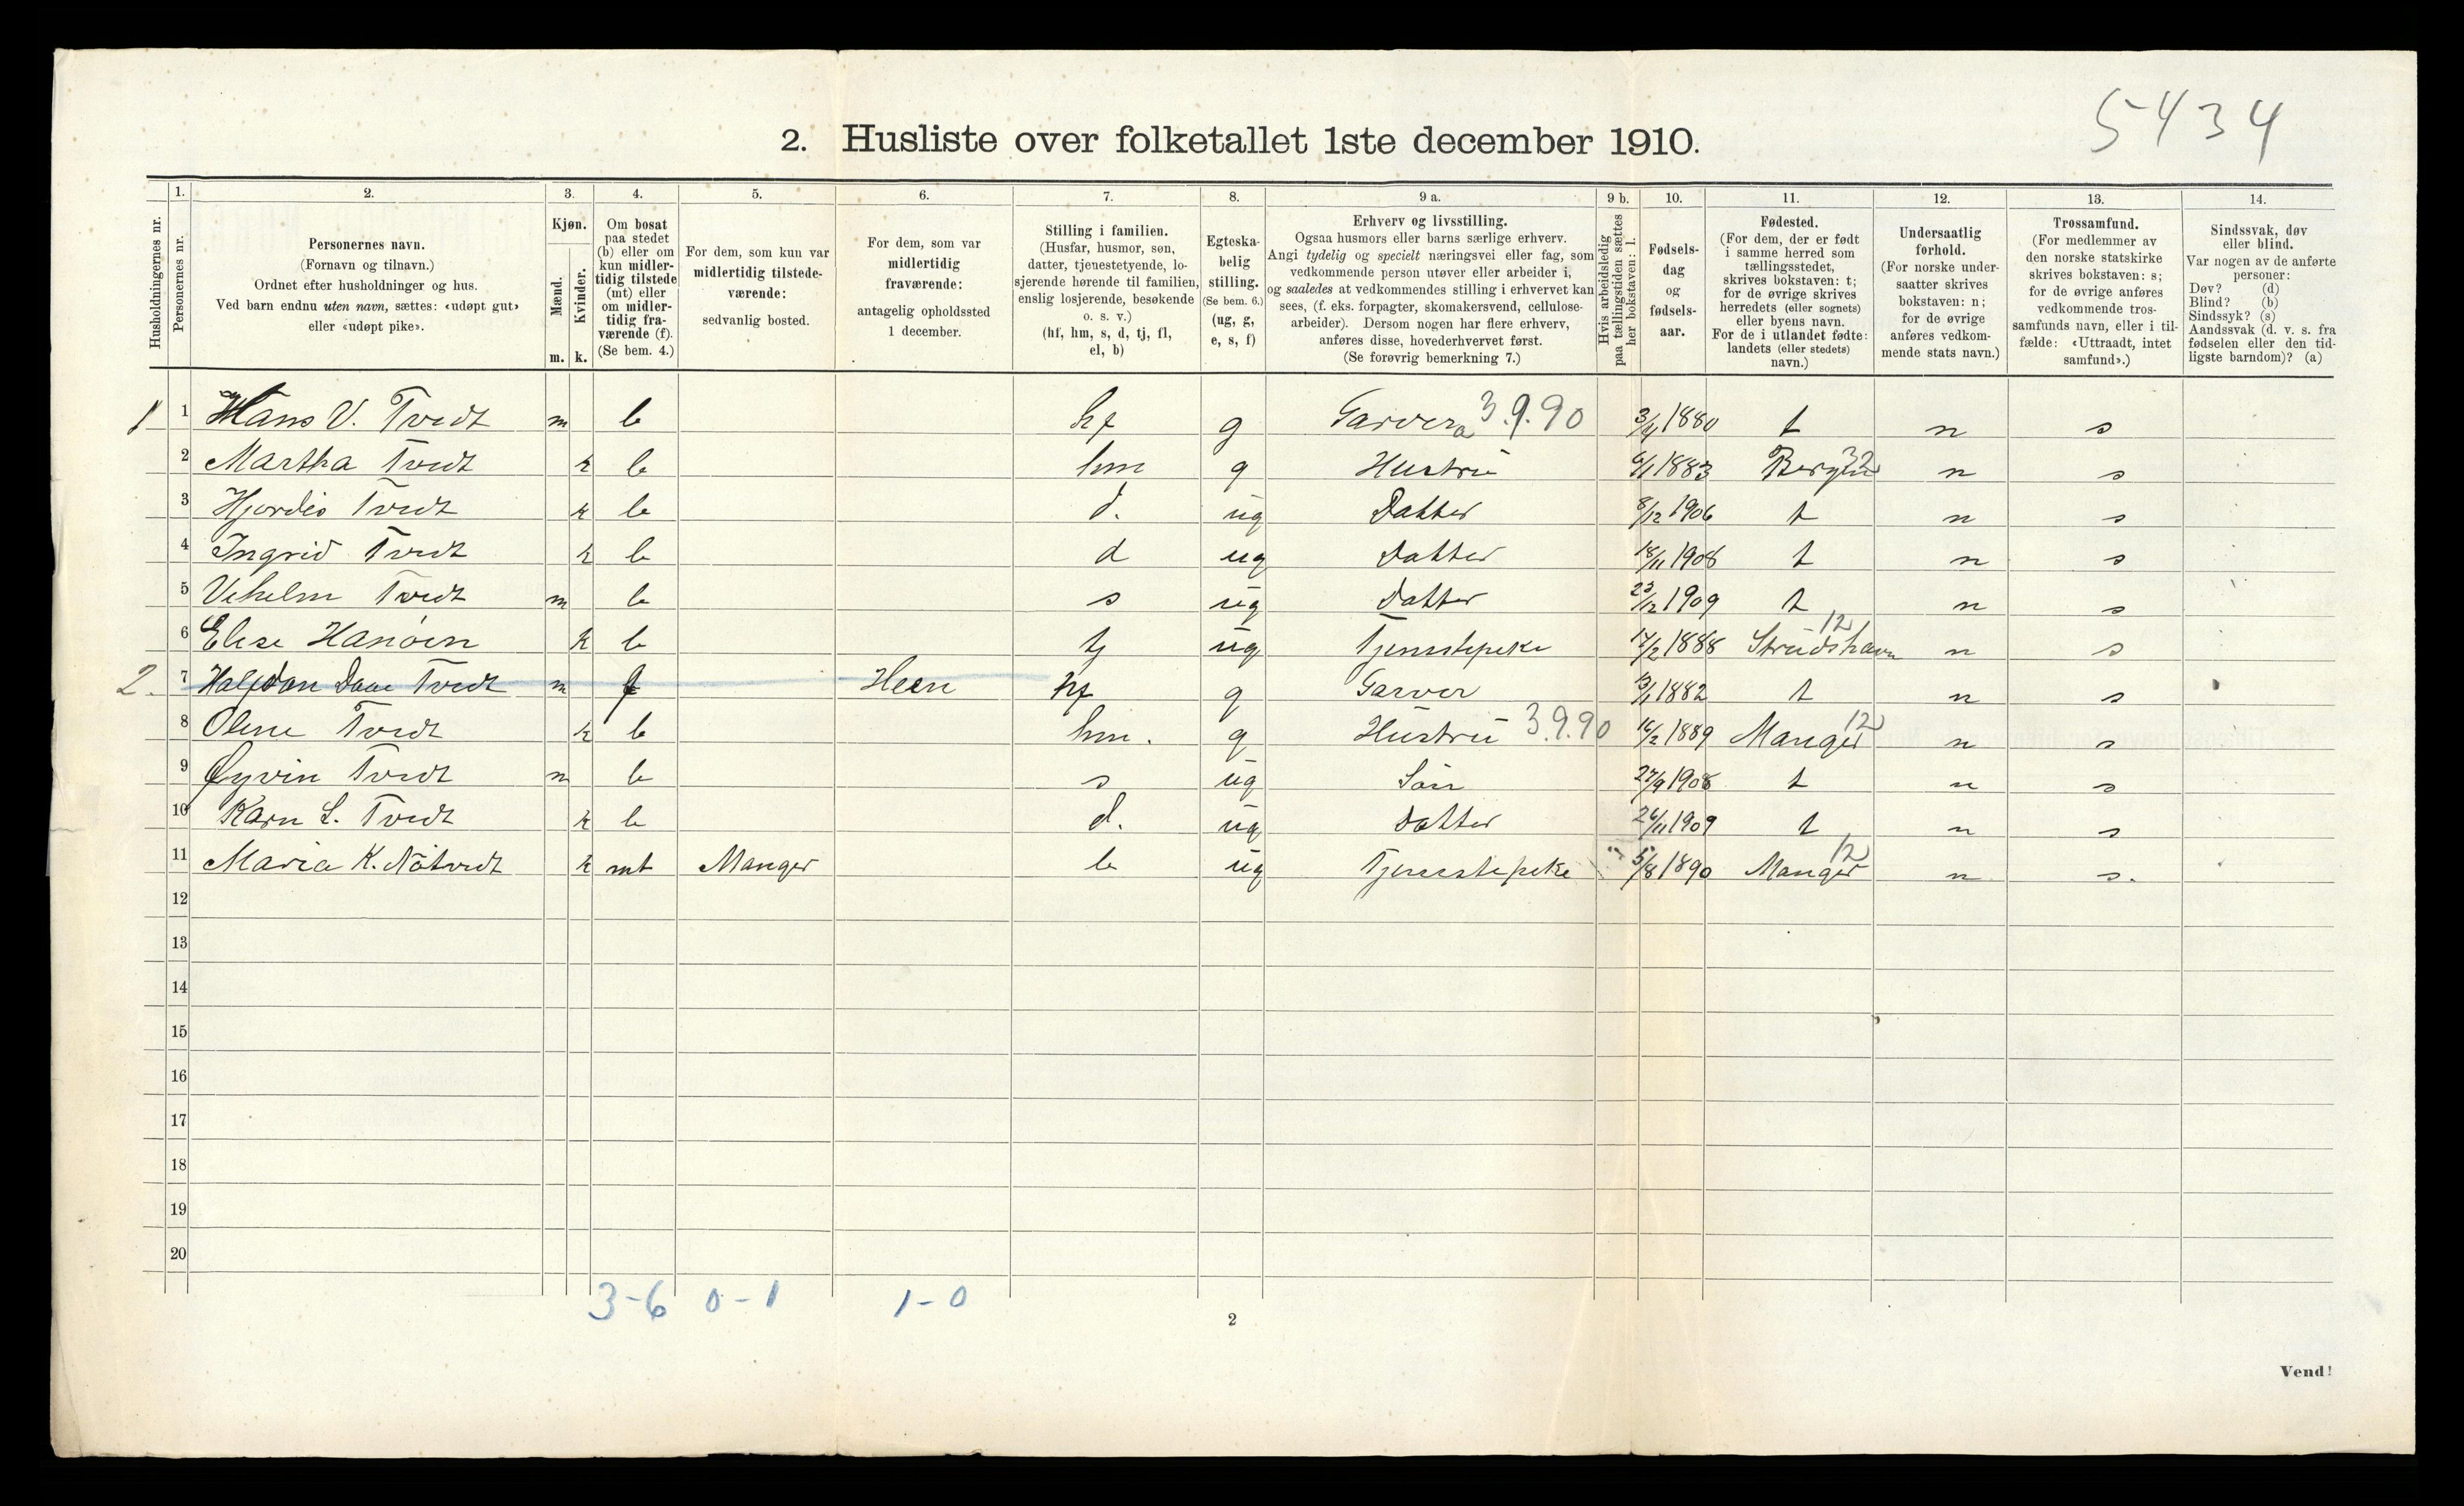 5434
2. Husliste over folketallet 1ste december 1910.
Husholdningernes nr.
1.
Personernes nr.
2.
Personernes navn.
(Fornavn og tilnavn.)
Ordnet efter husholdninger og hus.
Ved barn endnu uten navn, sættes: «udøpt gut»
eller «udøpt pike».
3.
Kjøn.
Mænd.
Kvinder.
m. k.
4.
Om bosat
paa stedet
(b) eller om
kun midler-
tidig tilstede
(mt) eller
om midler-
tidig fra-
værende (f).
(Se bem. 4.)
5.
For dem, som kun var
midlertidig tilstede-
værende:
sedvanlig bosted.
6.
For dem, som var
midlertidig
fraværende:
antagelig opholdssted
1 december.
7.
Stilling i familien.
(Husfar, husmor, søn,
datter, tjenestetyende, lo-
sjerende hørende til familien,
enslig losjerende, besøkende
o. s. v.)
(hf, hm, s, d, tj, fl,
el, b)
8.
Egteska-
belig
stilling.
(Se bem. 6.)
(ug, g,
e, s, f)
9 a.
Erhverv og livsstilling.
Ogsaa husmors eller barns særlige erhverv.
Angi tydelig og specielt næringsvei eller fag, som
vedkommende person utøver eller arbeider i,
og saaledes at vedkommendes stilling i erhvervet kan
sees, (f. eks. forpagter, skomakersvend, cellulose-
arbeider). Dersom nogen har flere erhverv,
anføres disse, hovederhvervet først.
(Se forøvrig bemerkning 7.)
9 b.
Hvis arbeidsledig
paa tællingstiden sættes
her bokstaven: l.
10.
Fødsels-
dag
og
fødsels-
aar.
11.
Fødested.
(For dem, der er født
i samme herred som
tællingsstedet,
skrives bokstaven: t;
for de øvrige skrives
herredets (eller sognets)
eller byens navn.
For de i utlandet fødte:
landets (eller stedets)
navn.)
12.
Undersaatlig
forhold.
(For norske under-
saatter skrives
bokstaven: n;
for de øvrige
anføres vedkom-
mende stats navn.)
13.
Trossamfund.
(For medlemmer av
den norske statskirke
skrives bokstaven: s;
for de øvrige anføres
vedkommende tros-
samfunds navn, eller i til-
fælde: «Uttraadt, intet
samfund».)
14.
Sindssvak, døv
eller blind.
Var nogen av de anførte
personer:
Døv? (d)
Blind? (b)
Sindssyk? (s)
Aandssvak (d. v. s. fra
fødselen eller den tid-
ligste barndom)? (a)
1 1 Hans V. Tvedt m b hf g Garver a 3.9.90 3/4 1880 t n s
2 Martha Tvedt k b hm g Hustru 6/1 1883 Bergen 32 n s
3 Hjordis Tvedt k b d. ug Datter 8/12 1906 t n s
4 Ingrid Tvedt k b d ug Datter 18/11 1908 t n s
5 Vihelm Tvedt m b s ug Datter 23/12 1909 t n s
6 Elise Hanøen k b tj ug Tjenestepike 17/2 1888 Strudshavn 12 n s
2. 7 Halfdan Daae Tvedt m f Heen hf g Garver 13/1 1882 t n s
8 Oline Tvedt k b hm. g Hustru 3.9.90 16/2 1889 Manger 12 n s
9 Øyvin Tvedt m b s ug Sön 27/9 1908 t n s
10 Karn L. Tvedt k b d. ug Datter 26/11 1909 t n s
11 Maria K. Nötvedt k mt Manger b ug Tjenestepike 5/8 1890 Manger 12 n s.
12
13
14
15
16
17
18
19
20
3-6 0-1 1-0
2
Vend!